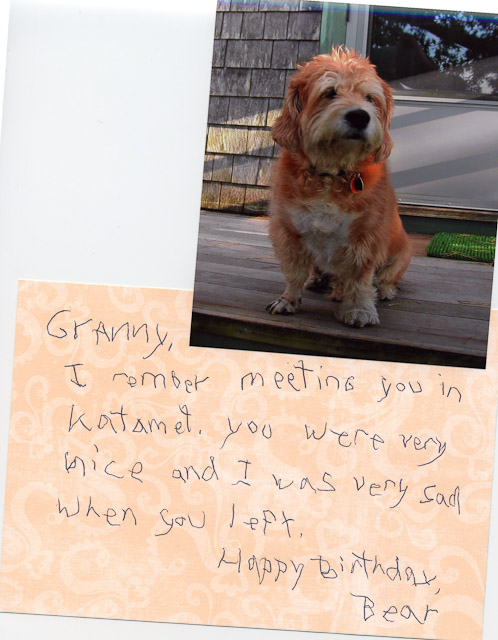 Granny,
I rember meeting you in
Katamet. you were very
nice and I was very sad
when you left.
Happy Birthday,
Bear